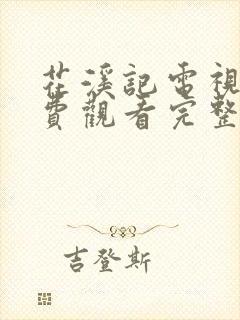 花溪記電視
費觀看完整
吉登斯